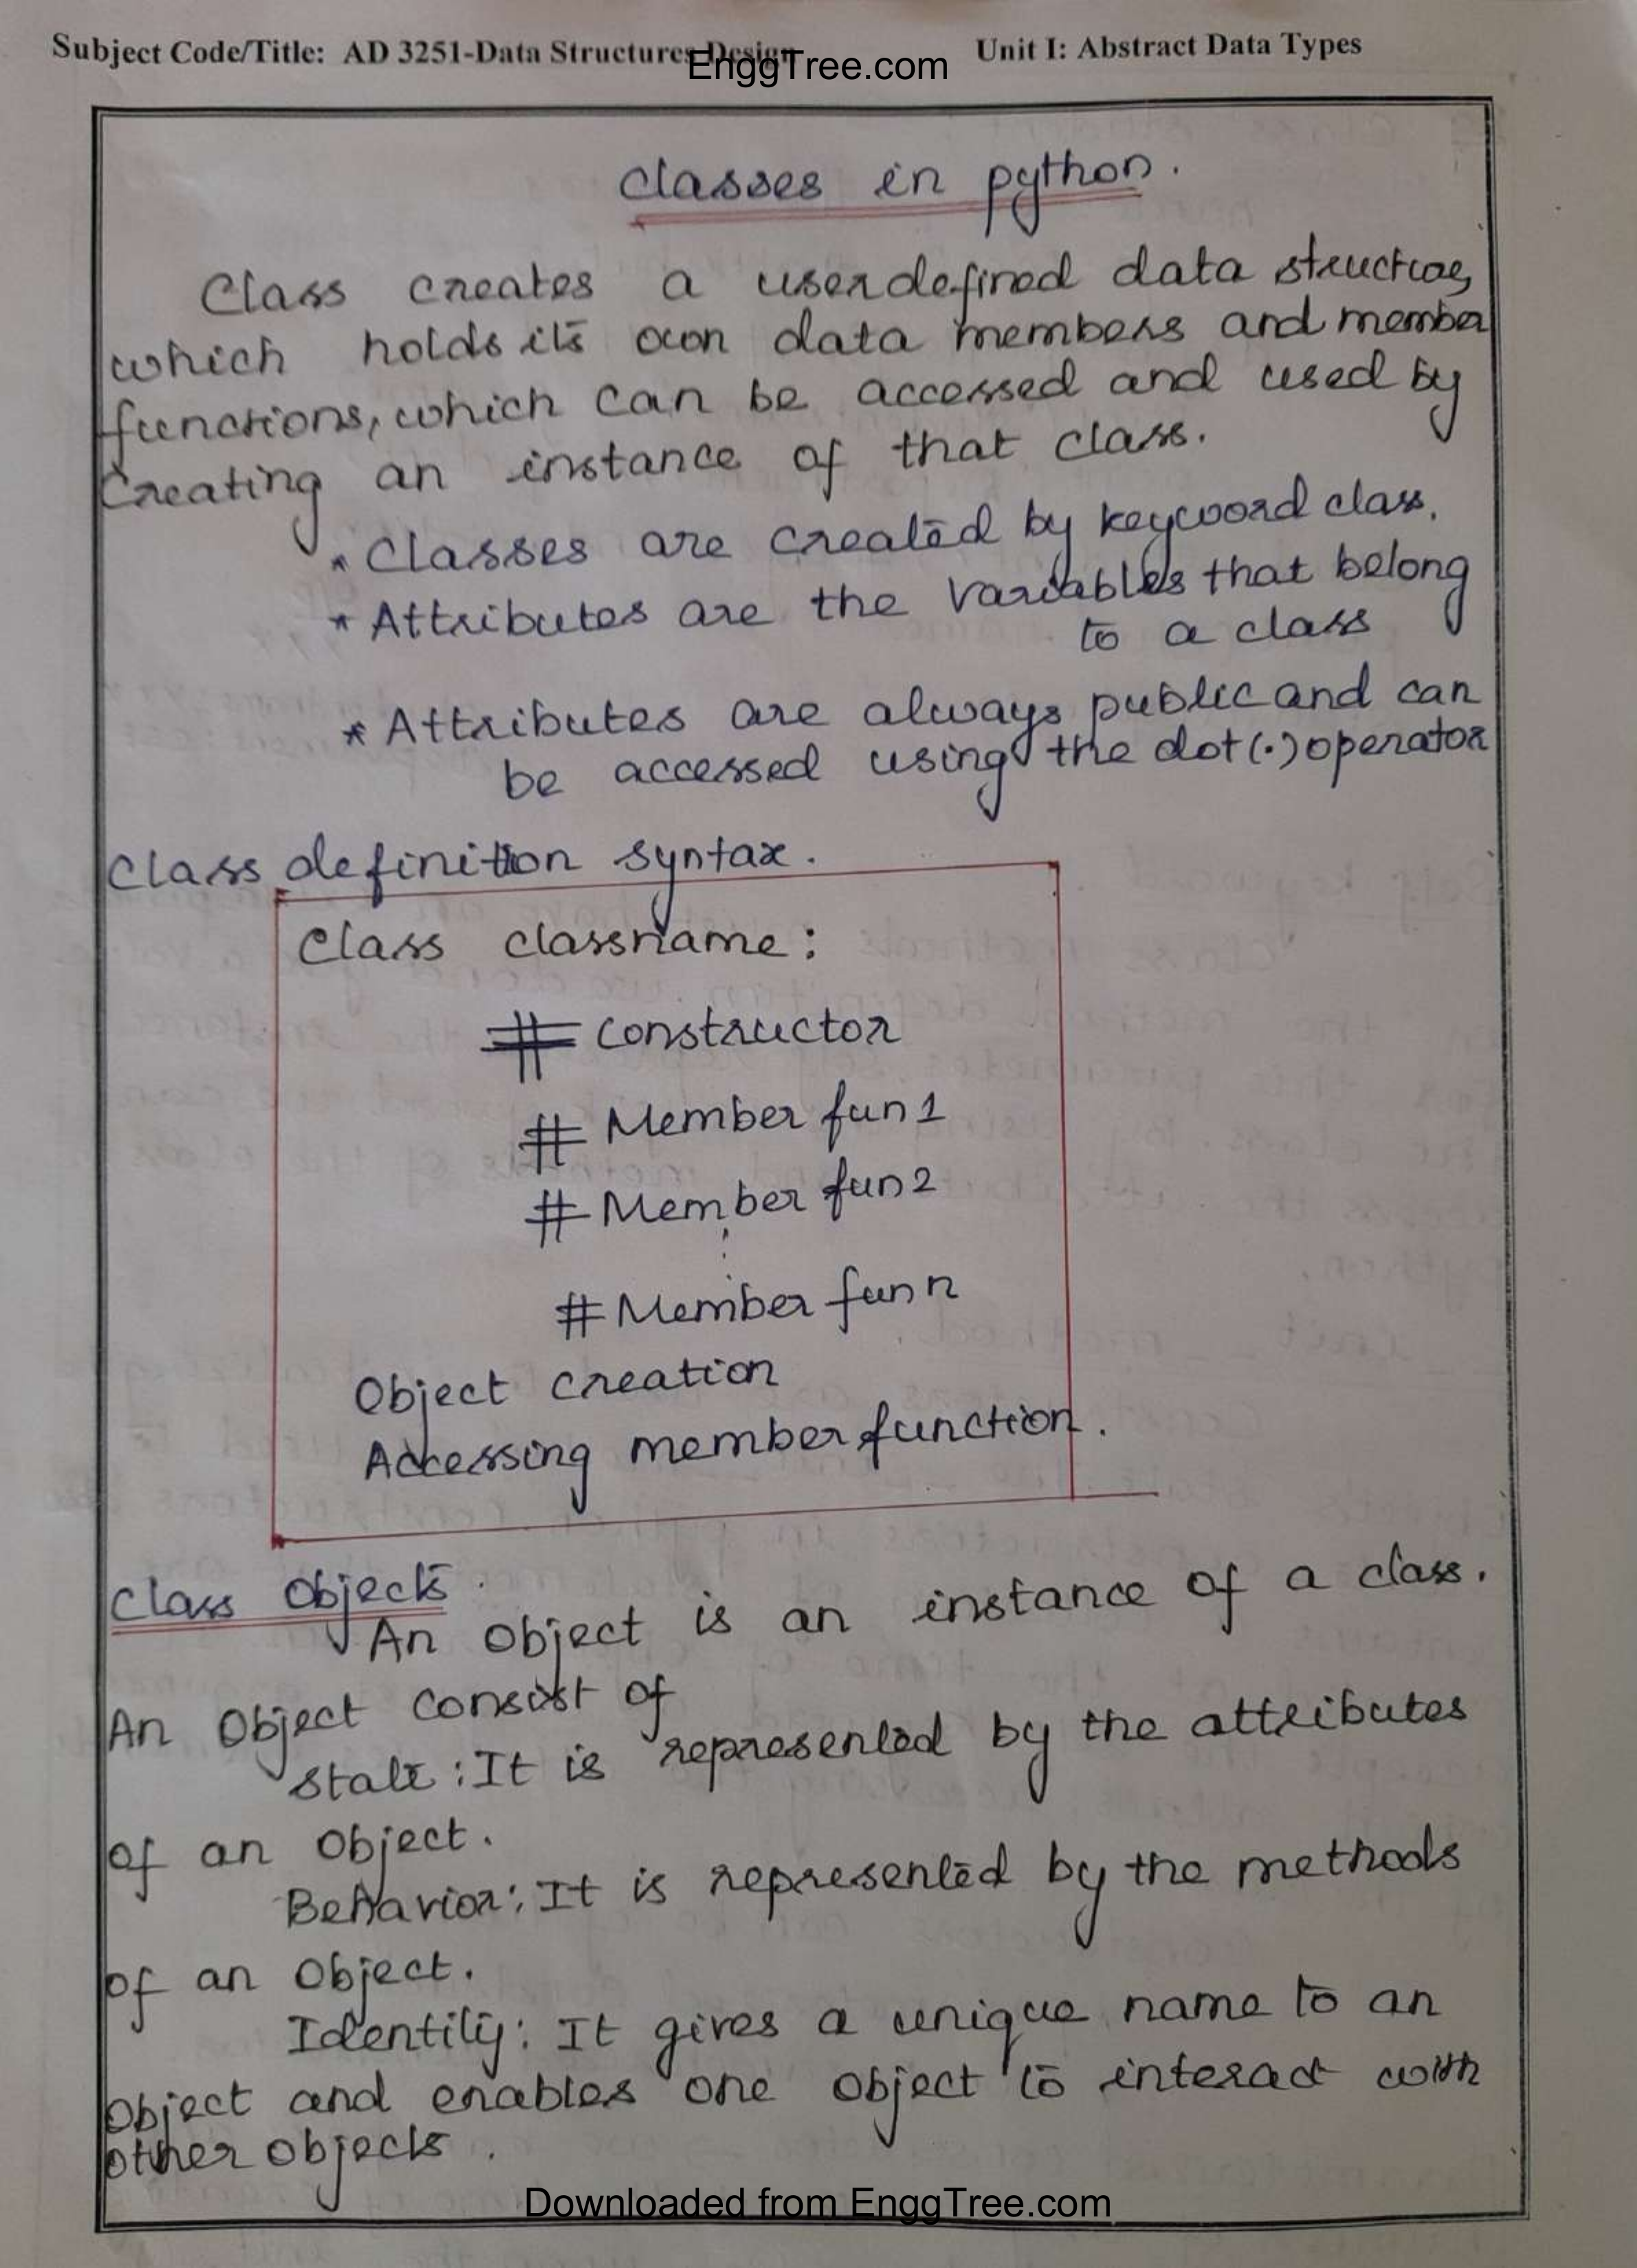 Subject Code/Title: AD 3251-Data Structures Design Unit I: Abstract Data Types
EnggTree.com
Classes in python.
Class creates a userdefined data structure,
which holds its own data members and member
functions, which can be accessed and used by
Creating an instance of that class.
* Classes are created by keyword class.
* Attributes are the variables that belong
to a class
* Attributes are always public and can
be accessed using the dot(.) operator
Class definition syntax.
Class classname:
# constructor
# Member fun 1
# Member fun 2
# Member fun n
Object creation
Accessing member function.
Class Objects.
An object is an instance of a class.
An Object consist of
state: It is represented by the attributes
of an Object.
Behavior: It is represented by the methods
of an Object.
Identity: It gives a unique name to an
Object and enables one object to interact with
other objects.
Downloaded from EnggTree.com